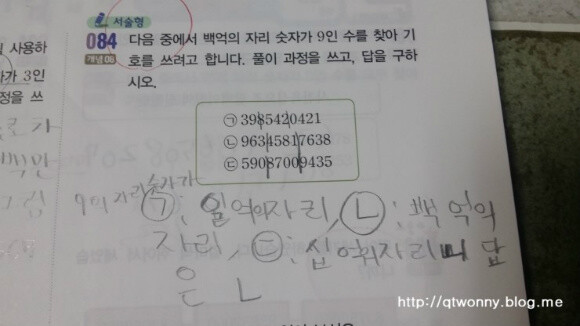 서술형
084 다음 중에서 백억의 자리 숫자가 9인 수를 찾아 기
개념 08 호를 쓰려고 합니다. 풀이 과정을 쓰고, 답을 구하
시오.
㉠ 3985420421
㉡ 96345817638
㉢ 59087009435
9의 자리 숫자가
㉠: 일억의자리, ㉡: 백억의
자리, ㉢: 십억의자리니 답
은 ㄴ
사용하
가 3인
정을 쓰
http://qtwonny.blog.me